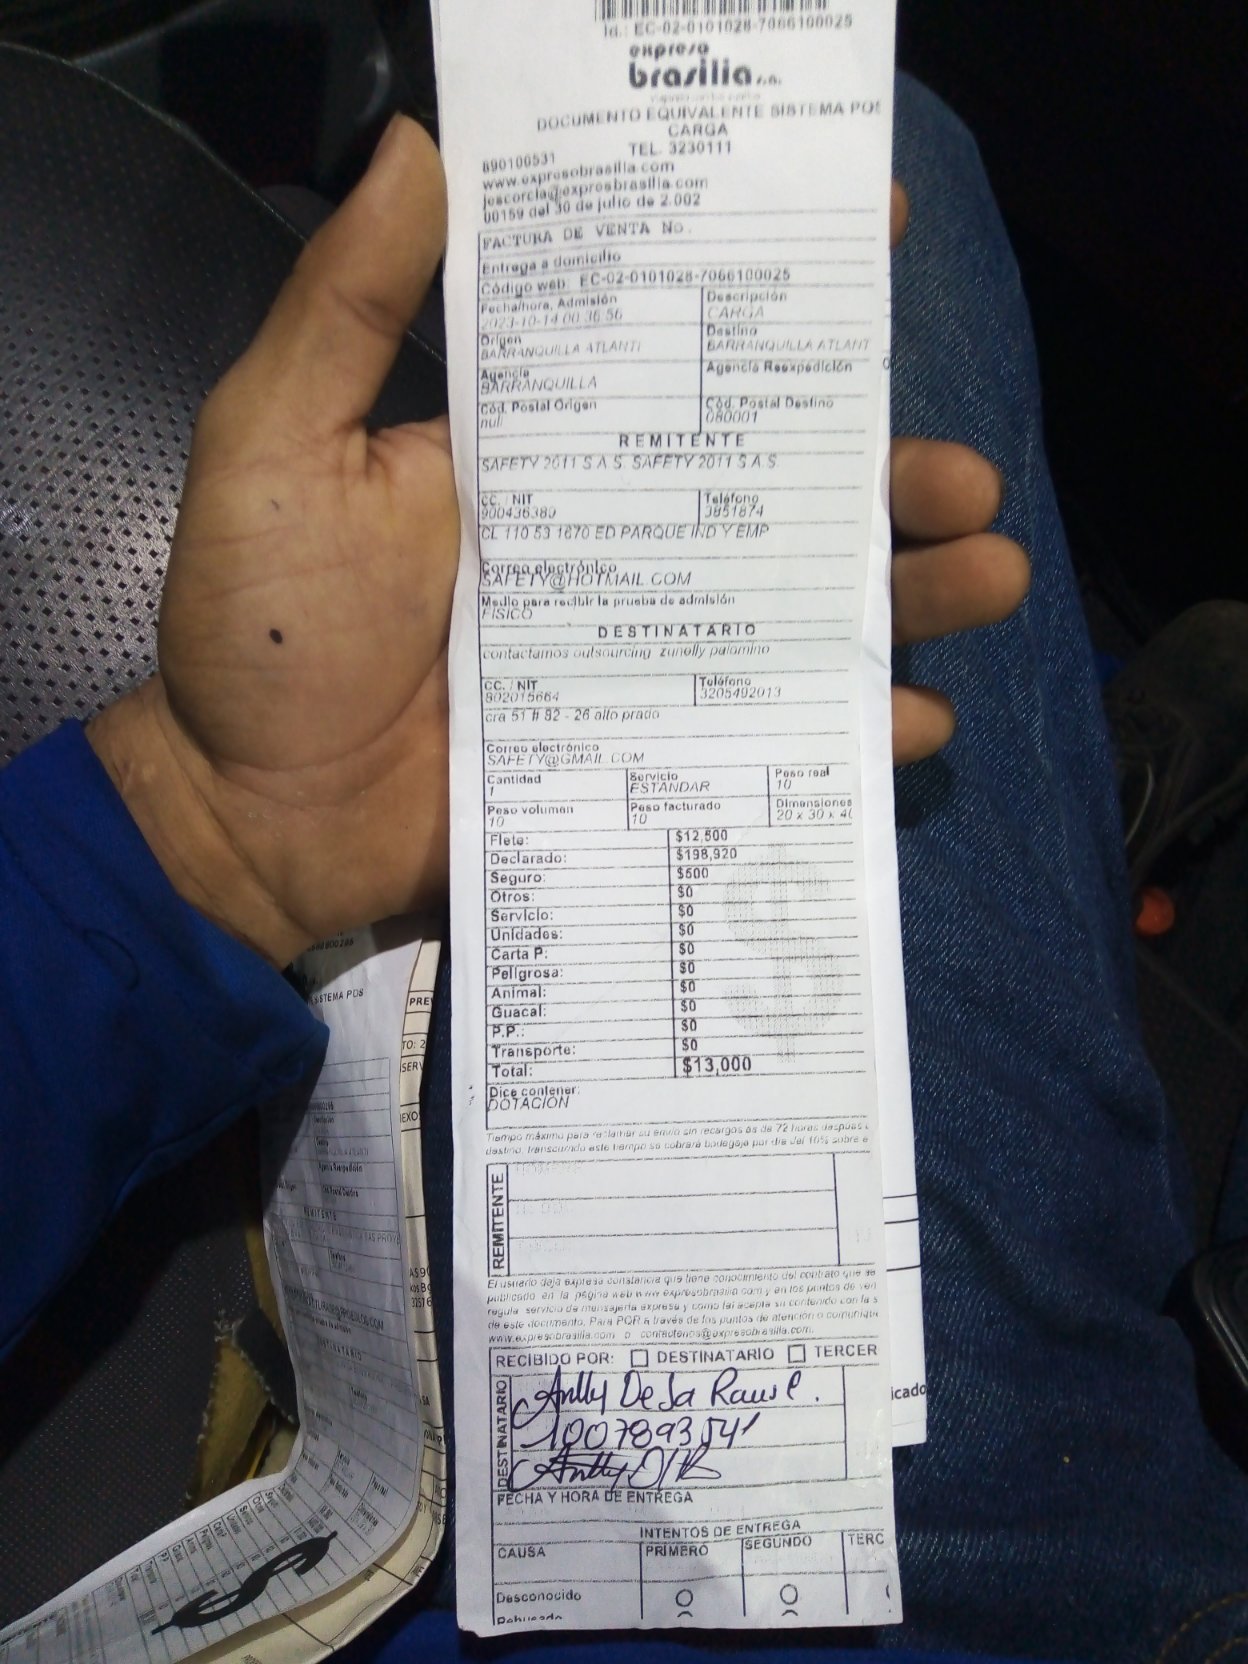 Id.: EC-02-0101028-7066100025
expreso
brasilia s.a.
DOCUMENTO EQUIVALENTE SISTEMA POS
CARGA
TEL. 3230111
890100531
www.expresobrasilia.com
jescorcia@expresbrasilia.com
00159 del 30 de julio de 2.002
FACTURA DE VENTA No.
Entrega a domicilio
Código web: EC-02-0101028-7066100025
Fecha/hora, Admisión
2023-10-14 00:36:56
Descripción
CARGA
Origen
BARRANQUILLA ATLANTI
Destino
BARRANQUILLA ATLANT
Agencia
BARRANQUILLA
Agencia Reexpedición
Cód. Postal Origen
null
Cód. Postal Destino
080001
REMITENTE
SAFETY 2011 S.A.S. SAFETY 2011 S.A.S.
CC. / NIT
900436389
Teléfono
3851874
CL 110 53 1670 ED PARQUE IND Y EMP
Correo electrónico
SAFETY@HOTMAIL.COM
Medio para recibir la prueba de admisión
FISICO
DESTINATARIO
contactamos outsourcing zunelly palomino
CC. / NIT
802015664
Teléfono
3205492013
cra 51 # 82 - 26 alto prado
Correo electrónico
SAFETY@GMAIL.COM
Cantidad
1
Servicio
ESTANDAR
Peso real
10
Peso volumen
10
Peso facturado
10
Dimensiones
20 x 30 x 4
Flete: $12,500
Declarado: $198,920
Seguro: $500
Otros: $0
Servicio: $0
Unidades: $0
Carta P: $0
Peligrosa: $0
Animal: $0
Guacal: $0
P.P.: $0
Transporte: $0
Total: $13,000
Dice contener:
DOTACION
Tiempo máximo para reclamar su envío sin recargos es de 72 horas después
destino, transcurrido este tiempo se cobrará bodegaje por día del 10% sobre e
REMITENTE
El usuario deja expresa constancia que tiene conocimiento del contrato que se
publicado en la página web www.expresobrasilia.com y en los puntos de ven
regula servicio de mensajería expresa y como tal acepta su contenido con la s
de este documento. Para PQR a través de los puntos de atención o comuniqu
www.expresobrasilia.com o contactenos@expresobrasilia.com.
RECIBIDO POR: DESTINATARIO TERCER
DESTINATARIO
De La
1007893541
FECHA Y HORA DE ENTREGA
INTENTOS DE ENTREGA
CAUSA PRIMERO SEGUNDO TERC
Desconocido
Rehusado
icado
SISTEMA POS
PRE
$